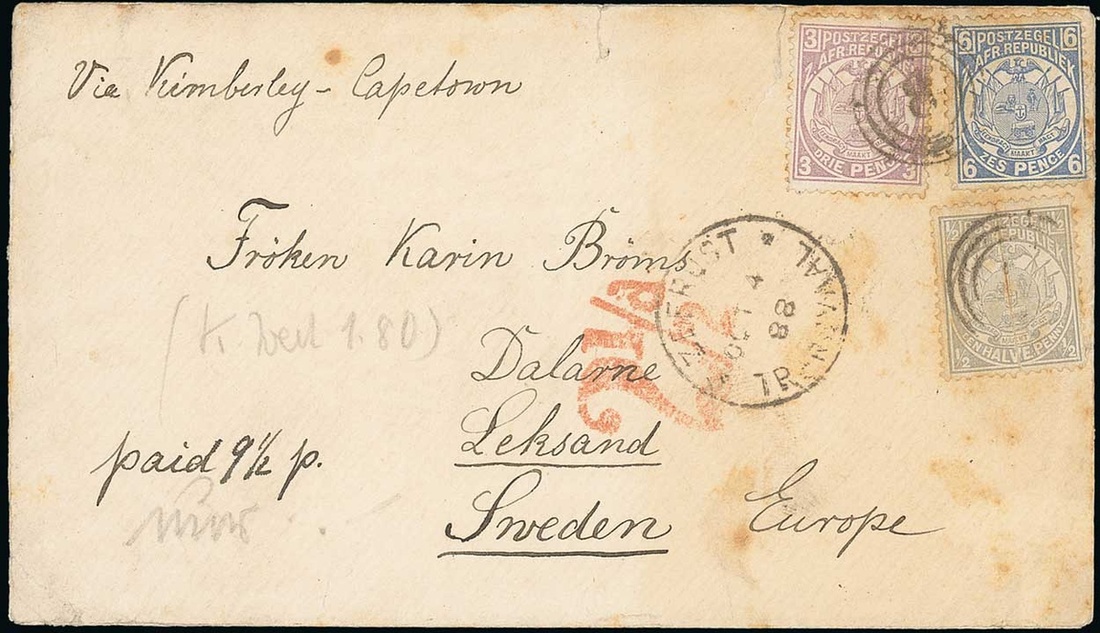 Via Kimberley - Capetown
3 POSTZEGEL
Z. AFR. REPUBLIEK
EENDRAGT MAAKT MAGT
3 DRIE PENCE 3
6 POSTZEGEL 6
Z. AFR. REPUBLIEK
EENDRAGT MAAKT MAGT
6 ZES PENCE 6
Fröken Karin Bröms
ZEERUST * TRANSVAAL
OCT 4
88
½ POSTZEGEL
REPUBLIEK
½ EEN HALVE PENNY ½
1/2
Dalarne
Leksand
paid 9½ p.
Sweden Europe